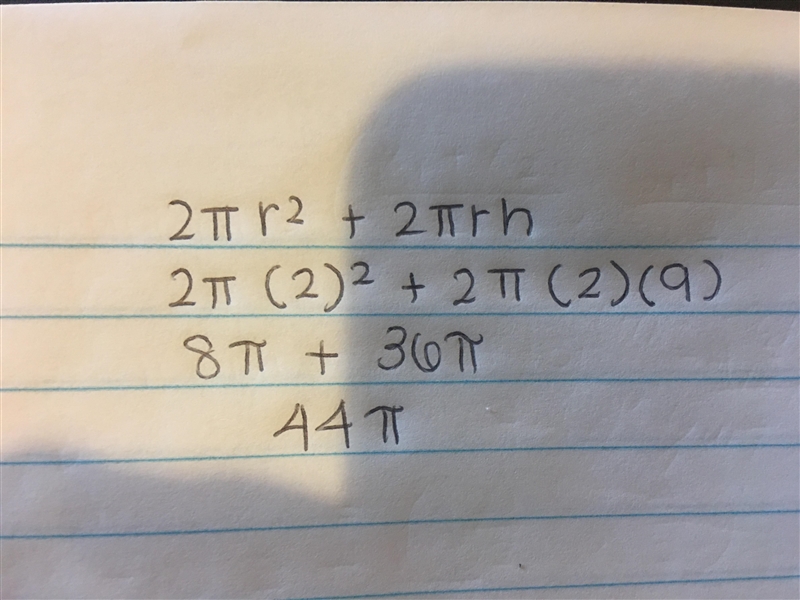 2πr² + 2πrh
2π(2)² + 2π(2)(9)
8π + 36π
44π